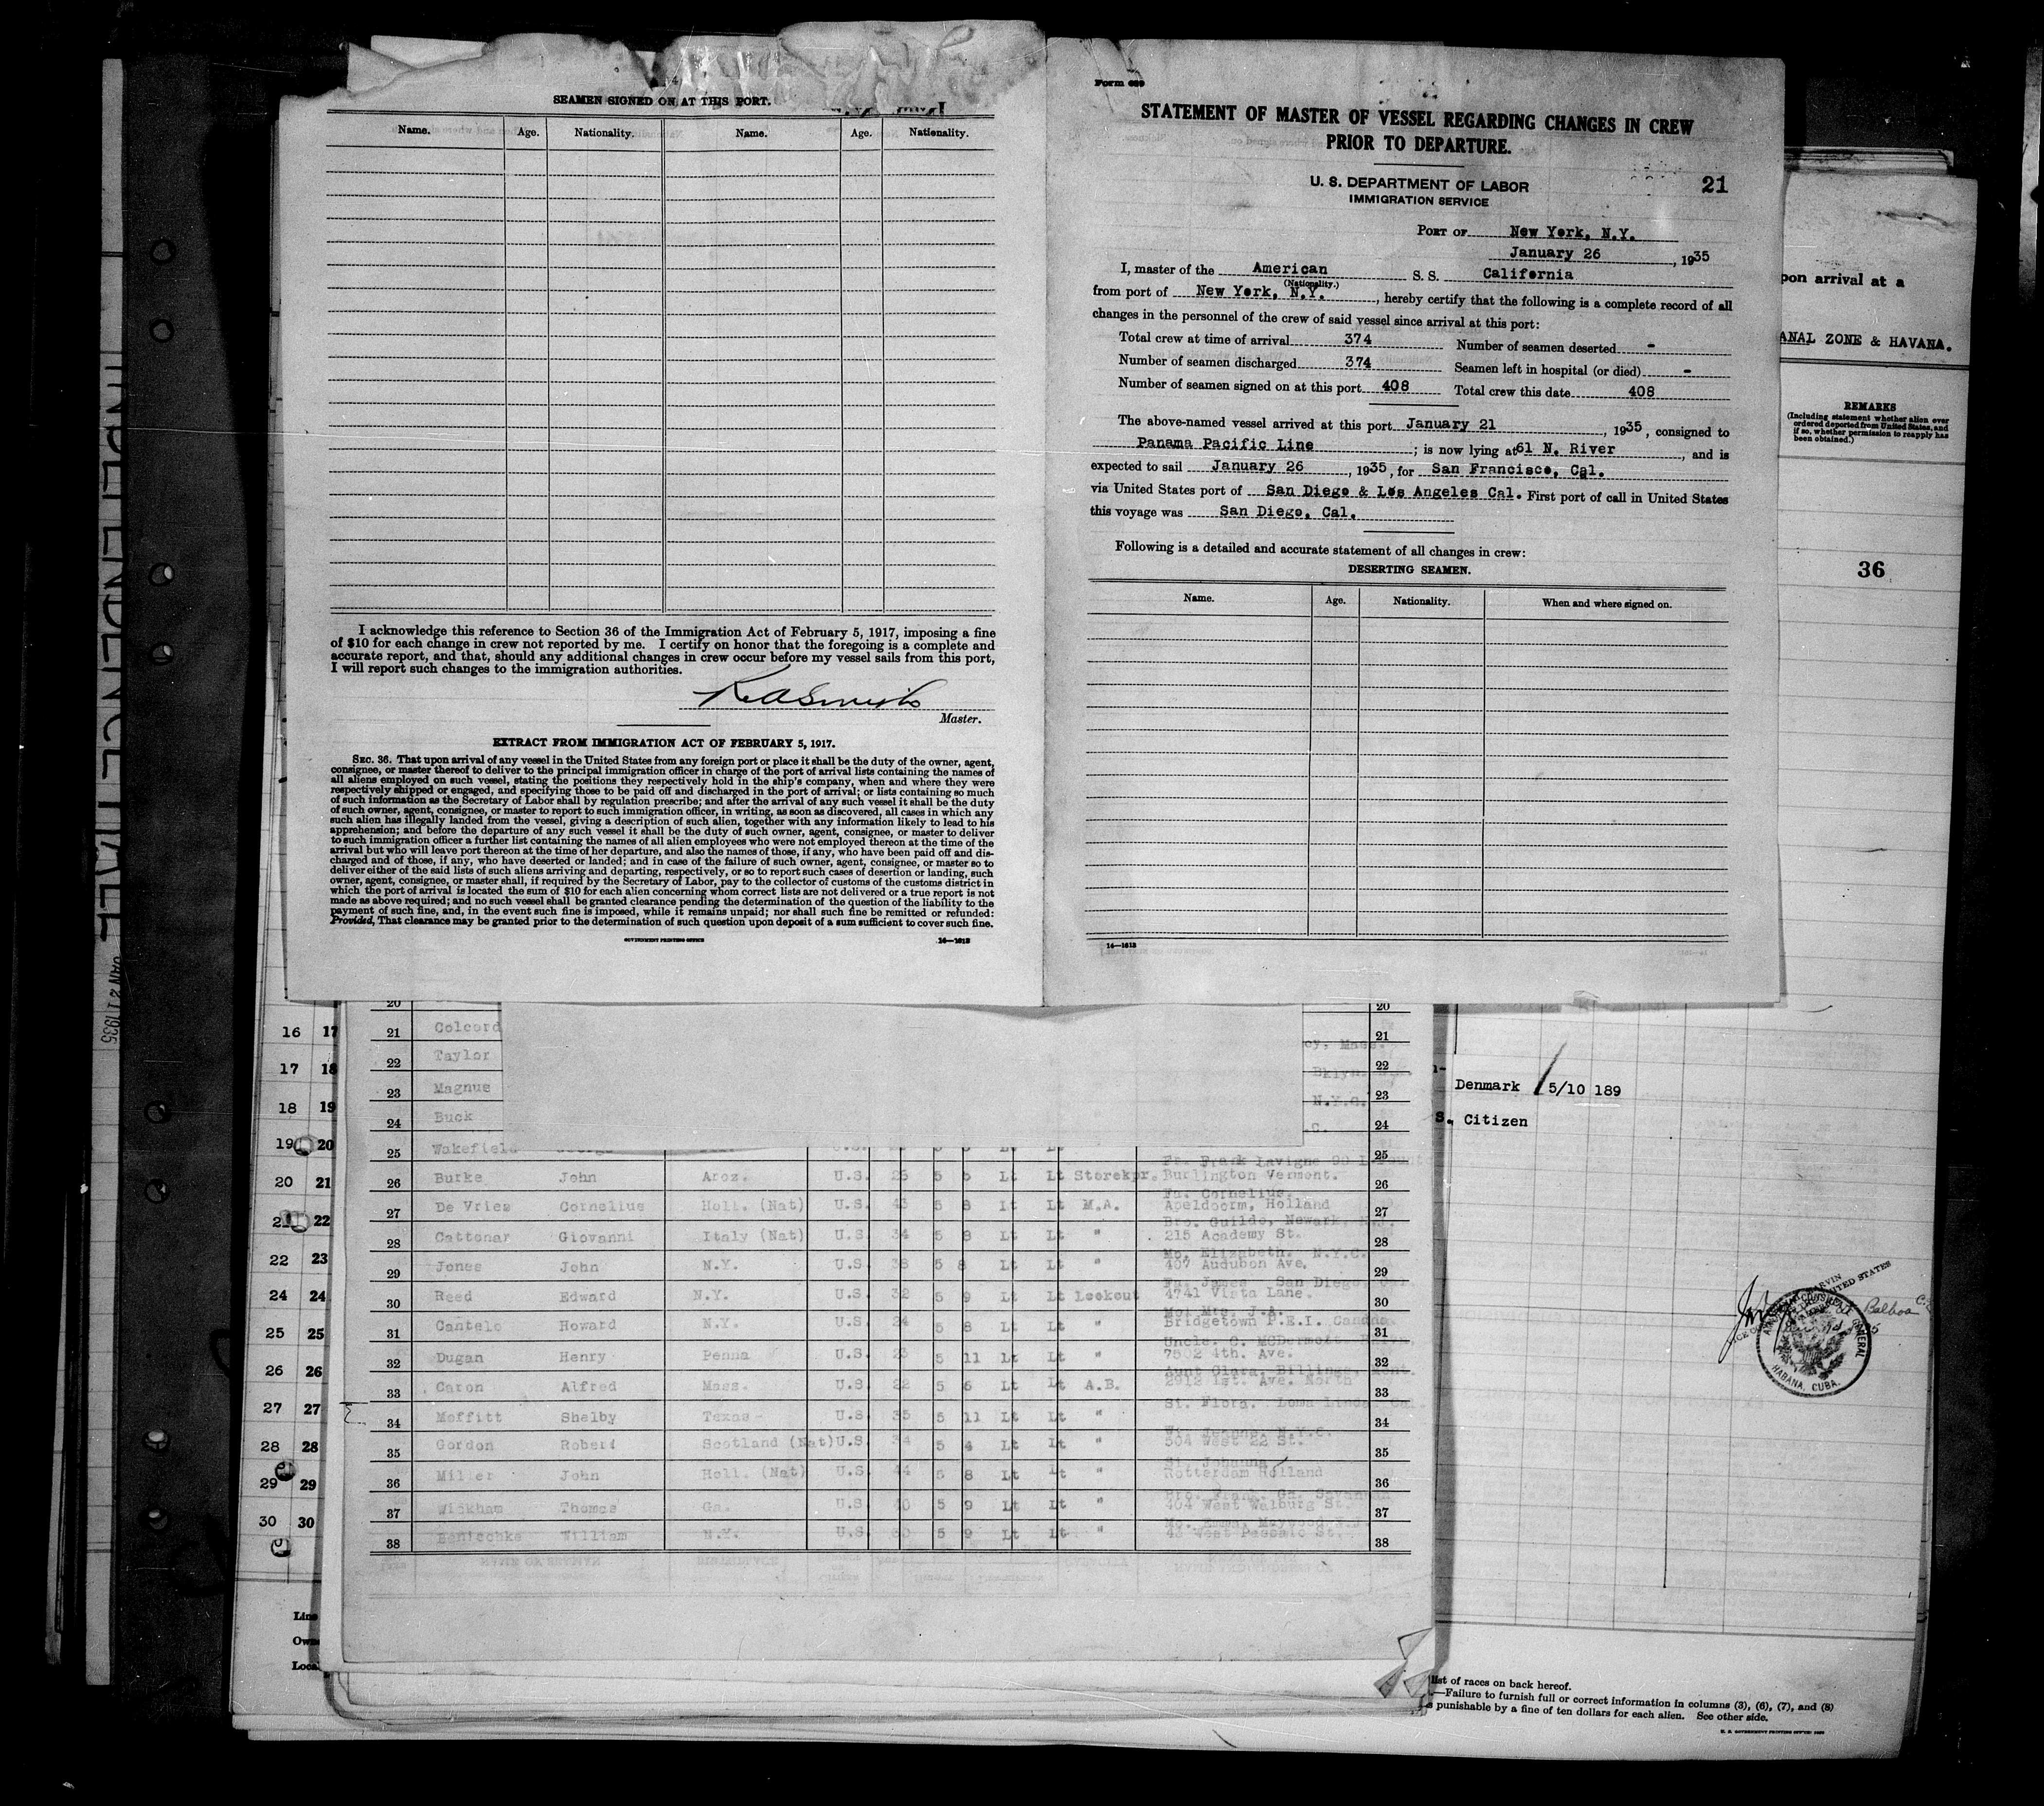 SEAMEN SIGNED ON AT THIS PORT.
Name. Age. Nationality. Name. Age. Nationality.
I acknowledge this reference to Section 36 of the Immigration Act of February 5, 1917, imposing a fine
of $10 for each change in crew not reported by me. I certify on honor that the foregoing is a complete and
accurate report, and that, should any additional changes in crew occur before my vessel sails from this port,
I will report such changes to the immigration authorities.
Master.
EXTRACT FROM IMMIGRATION ACT OF FEBRUARY 5, 1917.
SEC. 36. That upon arrival of any vessel in the United States from any foreign port or place it shall be the duty of the owner, agent,
consignee, or master thereof to deliver to the principal immigration officer in charge of the port of arrival lists containing the names of
all aliens employed on such vessel, stating the positions they respectively hold in the ship's company, when and where they were
respectively shipped or engaged, and specifying those to be paid off and discharged in the port of arrival; or lists containing so much
of such information as the Secretary of Labor shall by regulation prescribe; and after the arrival of any such vessel it shall be the duty
of such owner, agent, consignee, or master to report to such immigration officer, in writing, as soon as discovered, all cases in which any
such alien has illegally landed from the vessel, giving a description of such alien, together with any information likely to lead to his
apprehension; and before the departure of any such vessel it shall be the duty of such owner, agent, consignee, or master to deliver
to such immigration officer a further list containing the names of all alien employees who were not employed thereon at the time of the
arrival but who will leave port thereon at the time of her departure, and also the names of those, if any, who have been paid off and dis-
charged and of those, if any, who have deserted or landed; and in case of the failure of such owner, agent, consignee, or master so to
deliver either of the said lists of such aliens arriving and departing, respectively, or so to report such cases of desertion or landing, such
owner, agent, consignee, or master shall, if required by the Secretary of Labor, pay to the collector of customs of the customs district in
which the port of arrival is located the sum of $10 for each alien concerning whom correct lists are not delivered or a true report is not
made as above required; and no such vessel shall be granted clearance pending the determination of the question of the liability to the
payment of such fine, and, in the event such fine is imposed, while it remains unpaid; nor shall such fine be remitted or refunded:
Provided, That clearance may be granted prior to the determination of such question upon deposit of a sum sufficient to cover such fine.
GOVERNMENT PRINTING OFFICE 14—1613
Form 689
STATEMENT OF MASTER OF VESSEL REGARDING CHANGES IN CREW
PRIOR TO DEPARTURE.
U. S. DEPARTMENT OF LABOR
IMMIGRATION SERVICE
21
PORT OF New York, N.Y.
January 26, 1935
I, master of the American S. S. California
(Nationality.)
from port of New York, N.Y., hereby certify that the following is a complete record of all
changes in the personnel of the crew of said vessel since arrival at this port:
Total crew at time of arrival 374 Number of seamen deserted -
Number of seamen discharged 374 Seamen left in hospital (or died) -
Number of seamen signed on at this port 408 Total crew this date 408
The above-named vessel arrived at this port January 21, 1935, consigned to
Panama Pacific Line; is now lying at 61 N. River, and is
expected to sail January 26, 1935, for San Francisco, Cal.
via United States port of San Diego & Los Angeles Cal. First port of call in United States
this voyage was San Diego, Cal.
Following is a detailed and accurate statement of all changes in crew:
DESERTING SEAMEN.
Name. Age. Nationality. When and where signed on.
14—1613
pon arrival at a
ANAL ZONE & HAVANA.
REMARKS
(Including statement whether alien ever
ordered deported from United States, and
if so, whether permission to reapply has
been obtained.)
36
INDEPENDENCE HALL
JAN 21 1935
20 20
21 Colcord cy, Mass. 21
22 Taylor Bklyn. 22
23 Magnus N.Y.C. 23
24 Buck .C. 24
25 Wakefield 25
Fr. Frank Lavigne 90
26 Burke John Aroz. U.S. 23 5 6 Lt Lt Storekpr. Burlington Vermont. 26
Fa. Cornelius.
27 De Vries Cornelius Holl. (Nat) U.S. 43 5 8 Lt Lt M.A. Apeldoorm, Holland 27
Bro. Guildo, Newark, N.J.
28 Cattonar Giovanni Italy (Nat) U.S. 34 5 8 Lt Lt " 215 Academy St. 28
Mo. Elizabeth. N.Y.C.
29 Jones John N.Y. U.S. 38 5 8 Lt Lt " 407 Audubon Ave. 29
Fa. James San Diego, Cal
30 Reed Edward N.Y. U.S. 32 5 9 Lt Lt Lookout 4741 Vista Lane. 30
Mo. Mrs. J.A.
31 Cantelo Howard N.Y. U.S. 24 5 8 Lt Lt " Bridgetown P.E.I. Canada 31
Uncle. C. McDermott.
32 Dugan Henry Penna U.S. 23 5 11 Lt Lt " 7502 4th. Ave. 32
Aunt Clara, Billings, Mont.
33 Caron Alfred Mass. U.S. 22 5 6 Lt Lt A.B. 2912 1st. Ave. North 33
Si. Flora. Loma Linda Cal.
34 Moffitt Shelby Texas U.S. 35 5 11 Lt Lt " 34
Wi. Jeanne, N.Y.C.
35 Gordon Robert Scotland (Nat) U.S. 34 5 4 Lt Lt " 504 West 22 St. 35
Si. Johanna
36 Miller John Holl. (Nat) U.S. 44 5 8 Lt Lt " Rotterdam Holland 36
Bro. Frank. Ga. Savannah
37 Wickham Thomas Ga. U.S. 40 5 9 Lt Lt " 404 West Walburg St. 37
Mo. Emma, Maywood N.J.
38 Benitschke William N.Y. U.S. 5 9 Lt Lt " 42 West Passaic St. 38
16 17
17 18
18 19
19 20
20 21
21 22
22 23
24 24
25 25
26 26
27 27
28 28
29 29
30 30
Line
Owne
Local
Denmark 5/10 189
S. Citizen
Balboa C.Z.
HABANA, CUBA.
list of races on back hereof.
—Failure to furnish full or correct information in columns (3), (6), (7), and (8)
s punishable by a fine of ten dollars for each alien. See other side.
U. S. GOVERNMENT PRINTING OFFICE